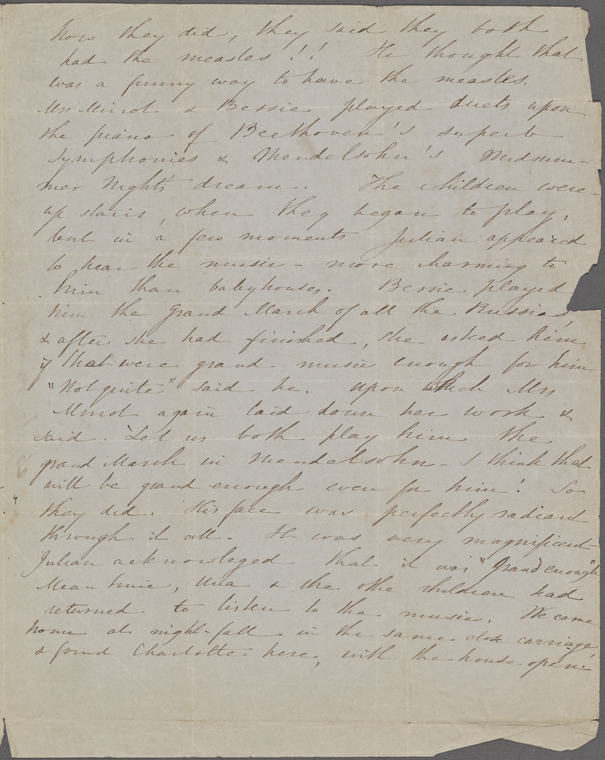 now they did, they said they both
had the measles!!! He thought that
was a funny way to have the measles.
Mrs Minot & Bessie played duets upon
the piano of Beethoven's superb
Symphonies & Mendelsohn's Midsum-
mer Night's dream. The children were
up stairs, when they began to play,
but in a few moments Julian appeared
to hear the music – more charming to
him than babyhouses. Bessie played
him the Grand March of all the Russias,
& after she had finished, she asked him
if that were grand music enough for him
"Not quite" said he. Upon which Mrs
Minot again laid down her work &
said. "Let us both play him the
grand March in Mendalsohn – I think that
will be grand enough even for him! So
they did. His face was perfectly radiant
through it all. It was very magnificent
Julian acknowleged that it was "Grand enough"
Mean time, Una & the othe children had
returned to listen to the music. We came
home at night-fall in the same close carriage,
& found Charlotte here, with the house open: